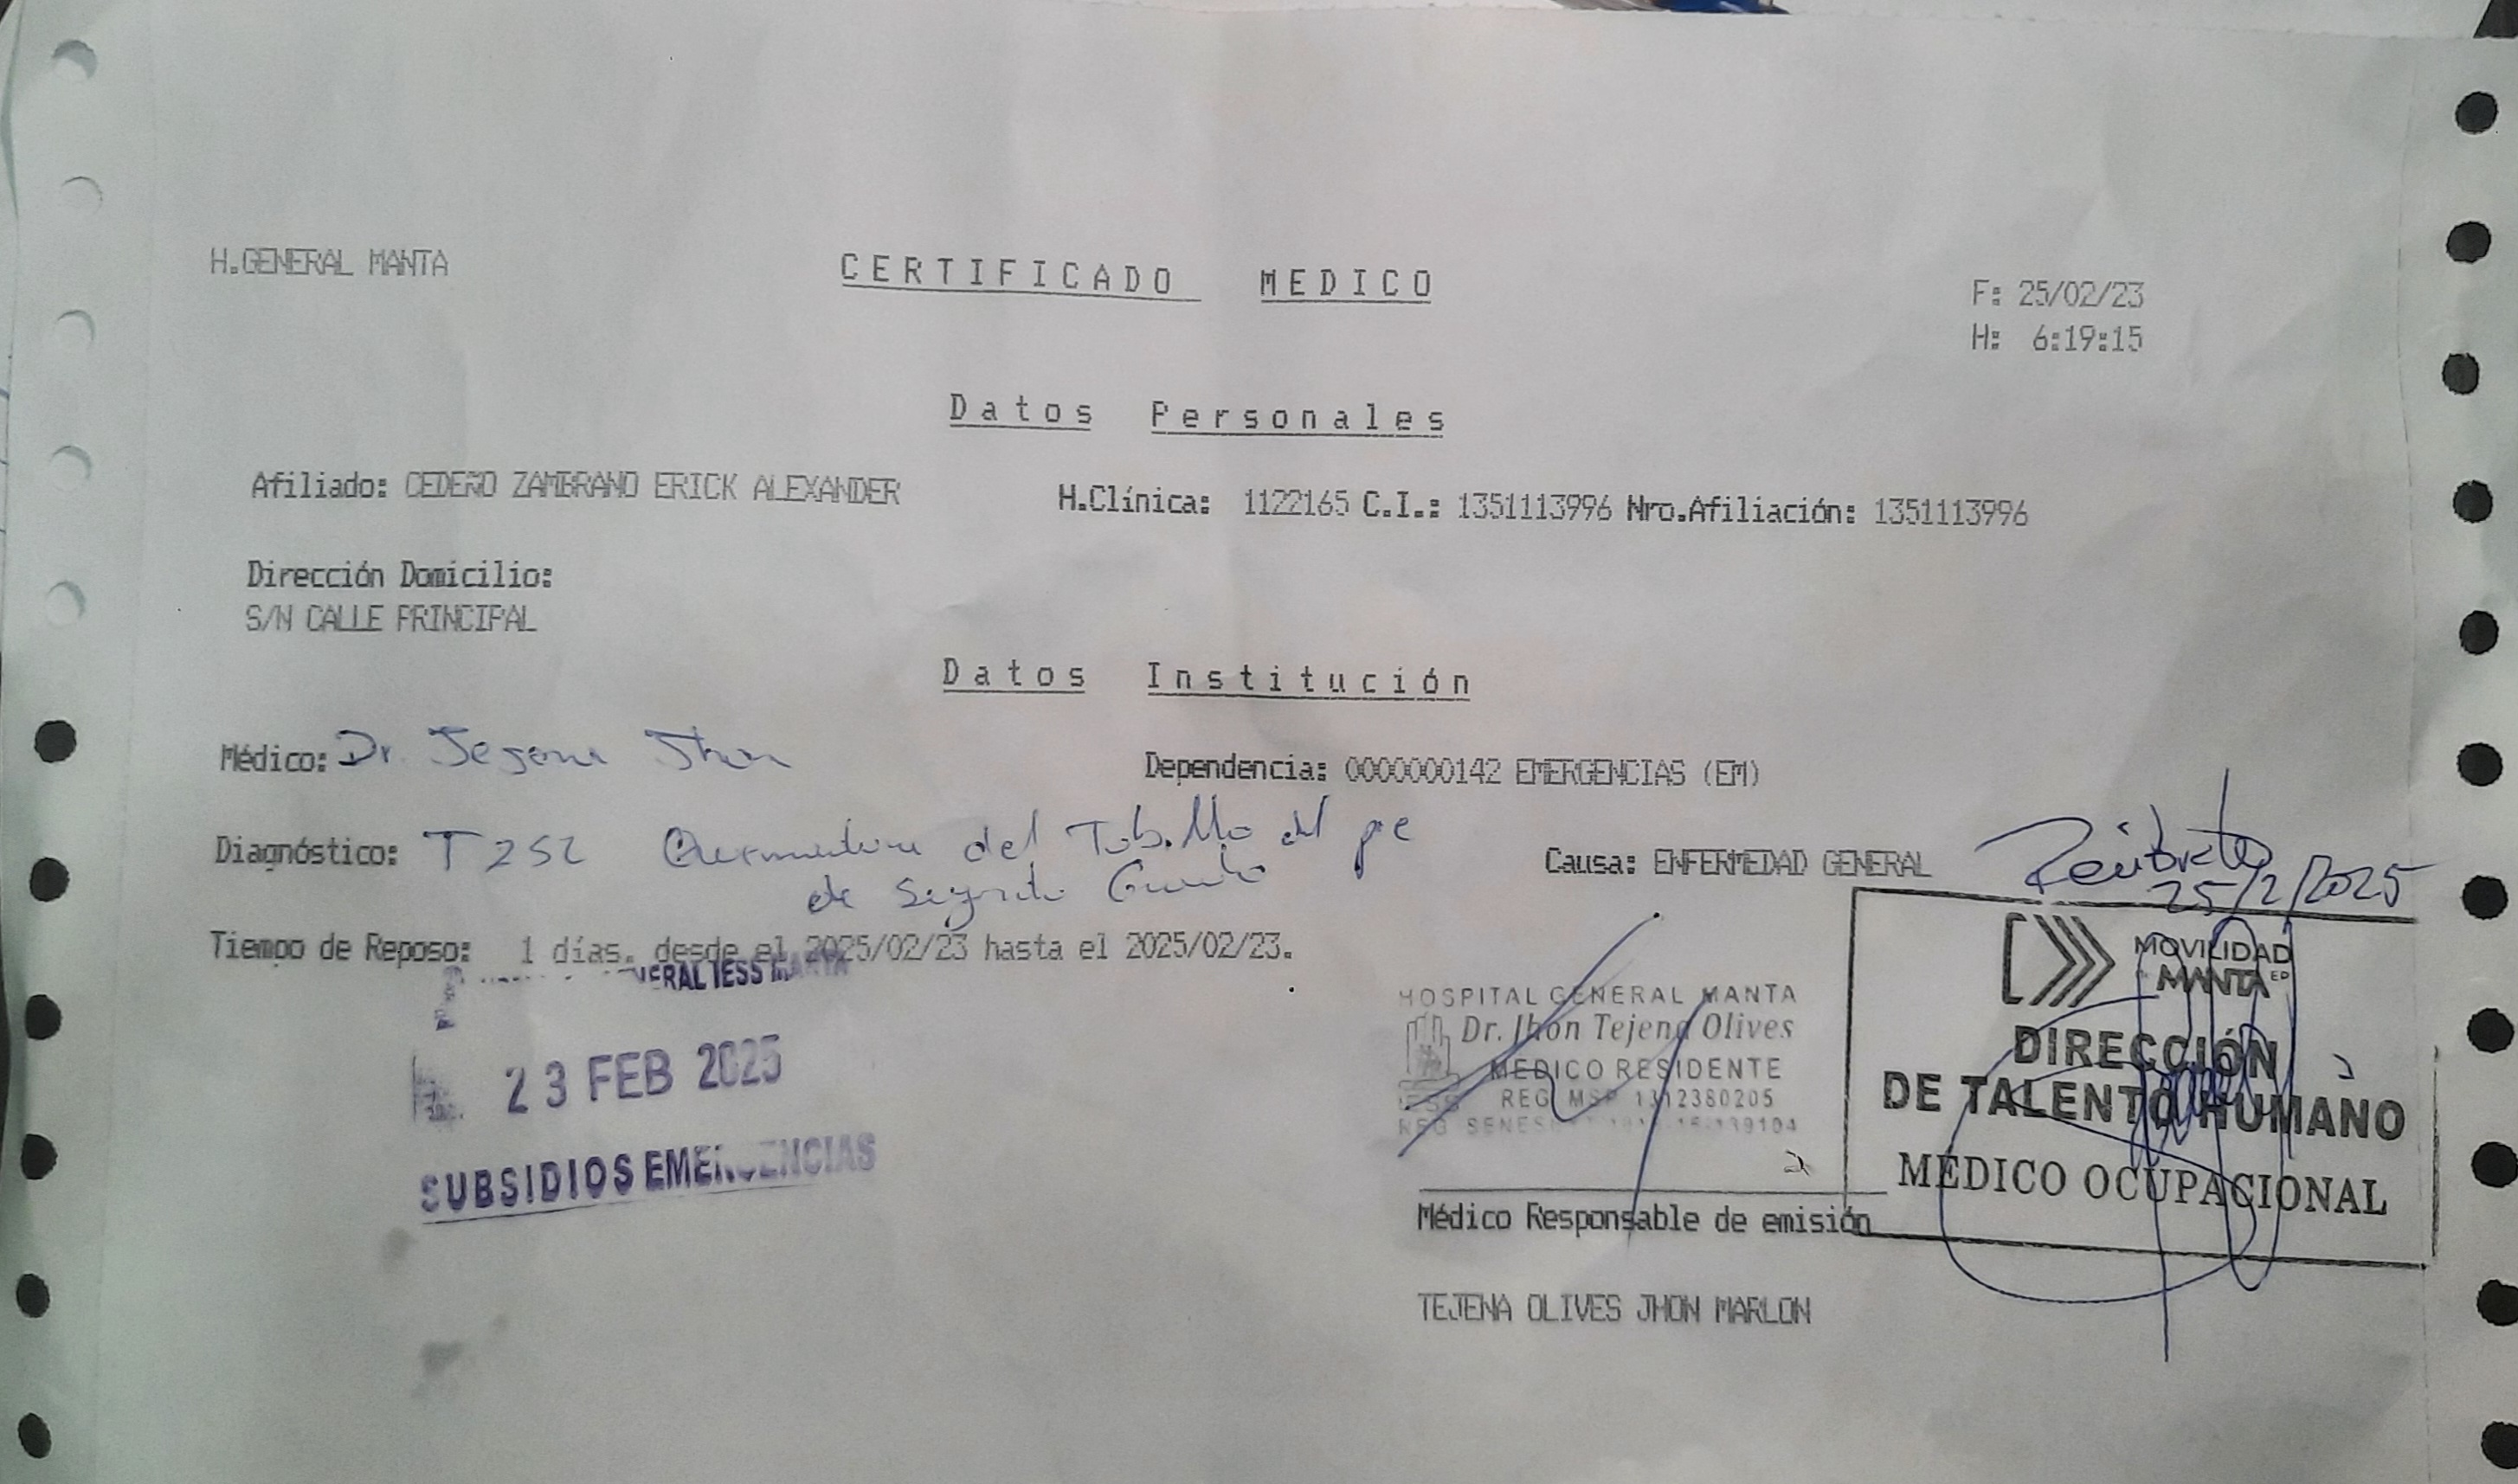 H.GENERAL MANTA
CERTIFICADO MEDICO
F: 25/02/23
H: 6:19:15
Datos Personales
Afiliado: CEDEÑO ZAMBRANO ERICK ALEXANDER
H.Clínica: 1122165 C.I.: 1351113996 Nro.Afiliación: 1351113996
Dirección Domicilio:
S/N CALLE PRINCIPAL
Datos Institución
Médico: Dr. Tejena Jhon
Dependencia: 0000000142 EMERGENCIAS (EM)
Diagnóstico: T252 Quemadura del Tobillo del pie
de Segundo Grado
Causa: ENFERMEDAD GENERAL
25/2/2025
Tiempo de Reposo: 1 días. desde el 2025/02/23 hasta el 2025/02/23.
IESS MANTA
23 FEB 2025
SUBSIDIOS EMERGENCIAS
HOSPITAL GENERAL MANTA
Dr. Jhon Tejena Olives
MEDICO RESIDENTE
REG MSP 1312380205
MOVILIDAD
MANTA EP
DIRECCIÓN
DE TALENTO HUMANO
MEDICO OCUPACIONAL
Médico Responsable de emisión
TEJENA OLIVES JHON MARLON